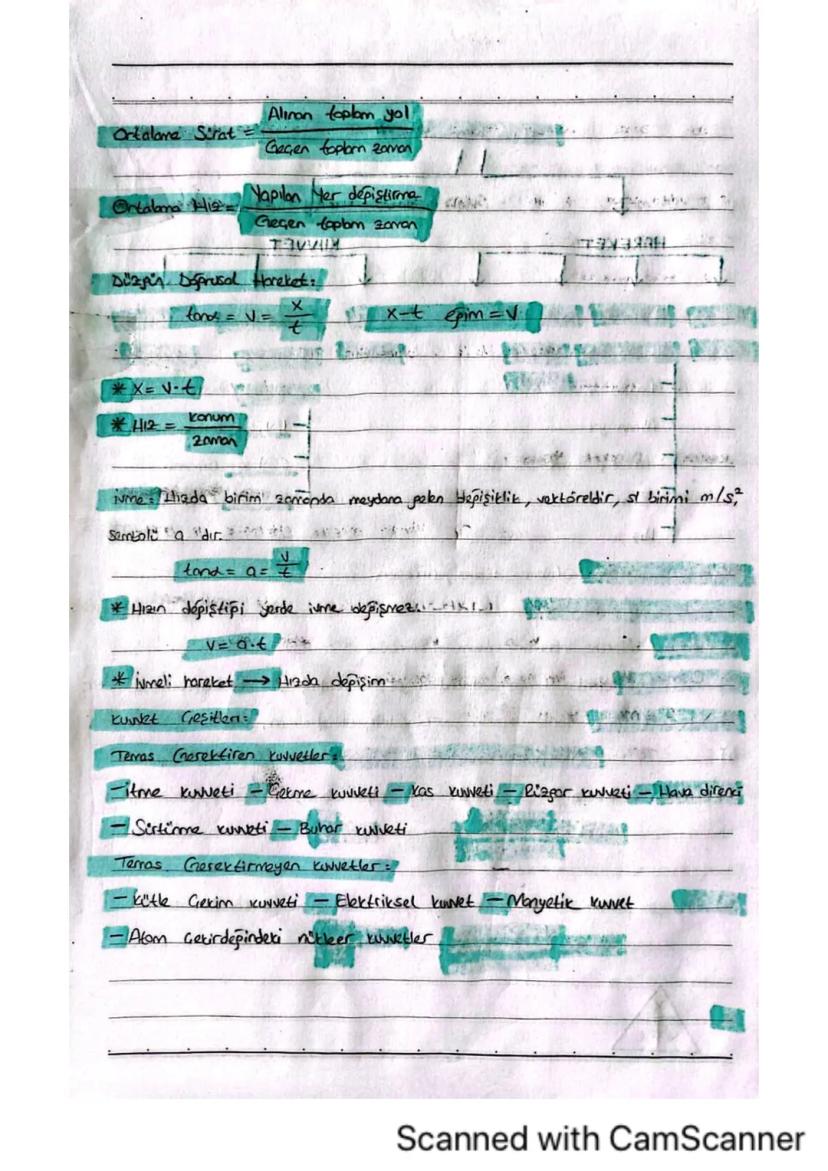 Ortalama Sürat = Alınan toplam yol / Geçen toplam zaman
Ortalama Hız = Yapılan Yer değiştirme / Geçen toplam zaman
KUVVET HAREKET
Düzgün Doğrusal Hareket:
tanα = V = X / t X-t eğim = V
* X = V·t
* Hız = konum / zaman
İvme: Hızda birim zamanda meydana gelen değişiklik, vektöreldir, SI birimi m/s²,
sembolü "a" dır.
tanα = a = V / t
* Hızın değiştiği yerde ivme değişmez.
V = a·t
* İvmeli hareket → Hızda değişim
Kuvvet Çeşitleri:
Temas Gerektiren kuvvetler:
- İtme kuvveti - Çekme kuvveti - Kas kuvveti - Rüzgar kuvveti - Hava direnci
- Sürtünme kuvveti - Buhar kuvveti
Temas Gerektirmeyen kuvvetler:
- Kütle Çekim kuvveti - Elektriksel kuvvet - Manyetik kuvvet
- Atom çekirdeğindeki nükleer kuvvetler
Scanned with CamScanner